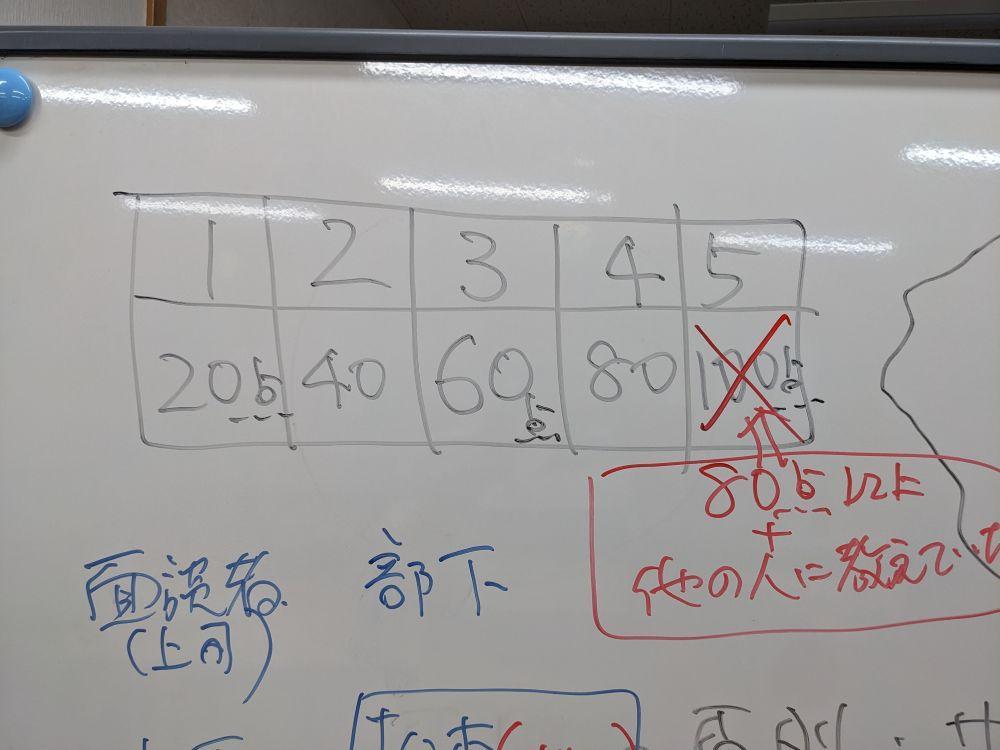 1 2 3 4 5
20点 40 60点 80 100点
80点以上
+
他の人に教えてい
面談者 部下
(上司)